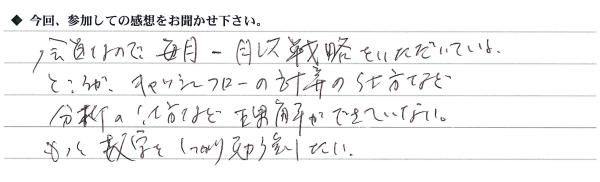 ◆ 今回、参加しての感想をお聞かせ下さい。
会員なので毎月一回レス戦略をいただいている。
ところが、キャッシュフローの計算の仕方など
分析の仕方など理解ができていない。
もっと数字をしっかり勉強したい。